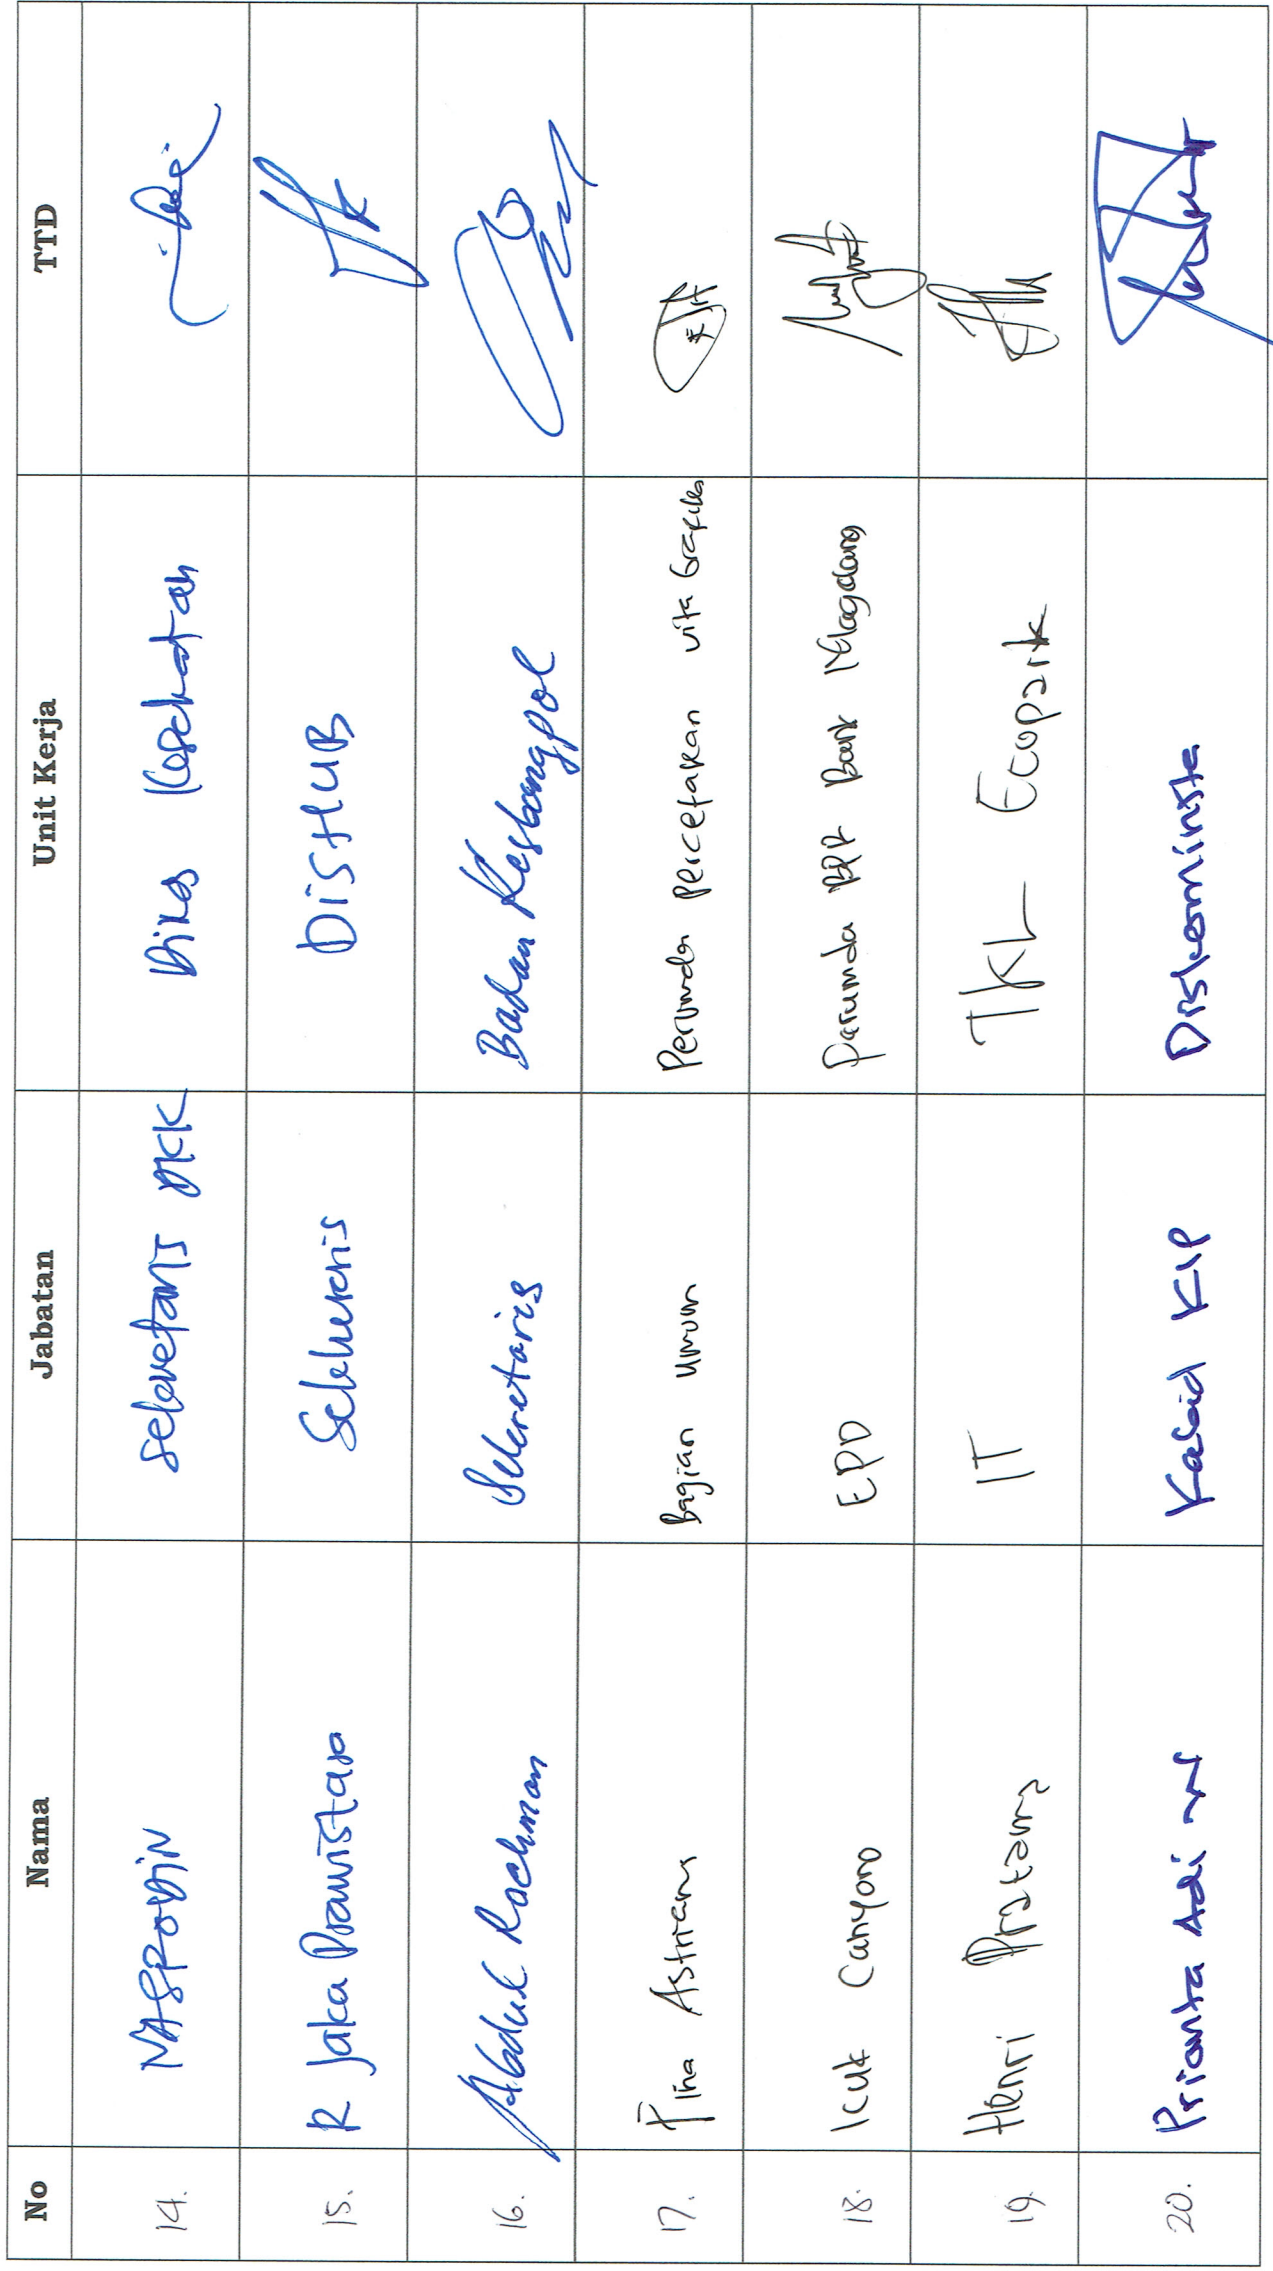 No Nama Jabatan Unit Kerja TTD
14. MASRODIN Sekretaris DKK Dinas Kesehatan
15. R Jaka Prawistao Sekretaris DISHUB
16. Abdul Rochman Sekretaris Badan Kesbangpol
17. Fina Astriany Bagian Umum Perumda percetakan vita Grafika
18. Icuk Cahyono EPD Perumda BPR Bank Magelang
19. Henri Pratama IT TKL Ecopark
20. Prianta Adi N Kabid KIP Diskominsta